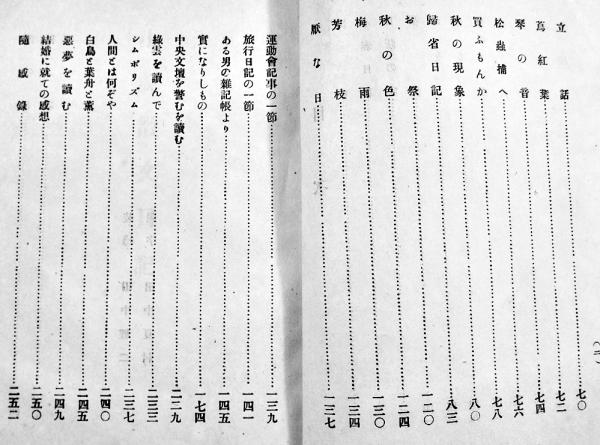 立話……七〇
蔦紅葉……七二
琴の音……七四
松蟲捕へ……七六
買ふもんか……七八
秋の現象……八〇
歸省日記……八三
お祭……一二〇
秋の色……一二四
梅雨……一三〇
芳枝……一三四
厭な日……一三七
運動會記事の一節……一三九
旅行日記の一節……一四一
ある男の雜記帳より……一四五
實になりしもの……一七四
中央文壇を警むを讀む……二二九
綠雲を讀んで……二三三
シムボリズム……二三七
人間とは何ぞや……二四〇
白鳥と葉舟と薫……二四五
惡夢を讀む……二四九
結婚に就ての感想……二五〇
隨感錄……二五二